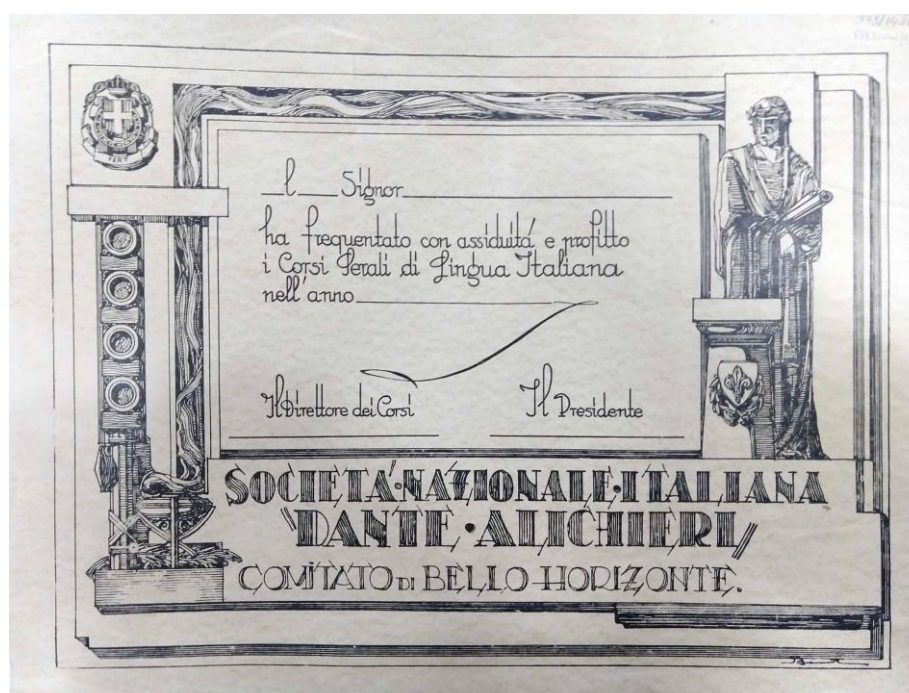 _l___Signor
ha frequentato con assiduitá e profitto
i Corsi Serali di Lingua Italiana
nell'anno
Il Direttore dei Corsi
Il Presidente
SOCIETÁ·NAZIONALE·ITALIANA
"DANTE·ALIGHIERI"
COMITATO DI BELLO HORIZONTE.